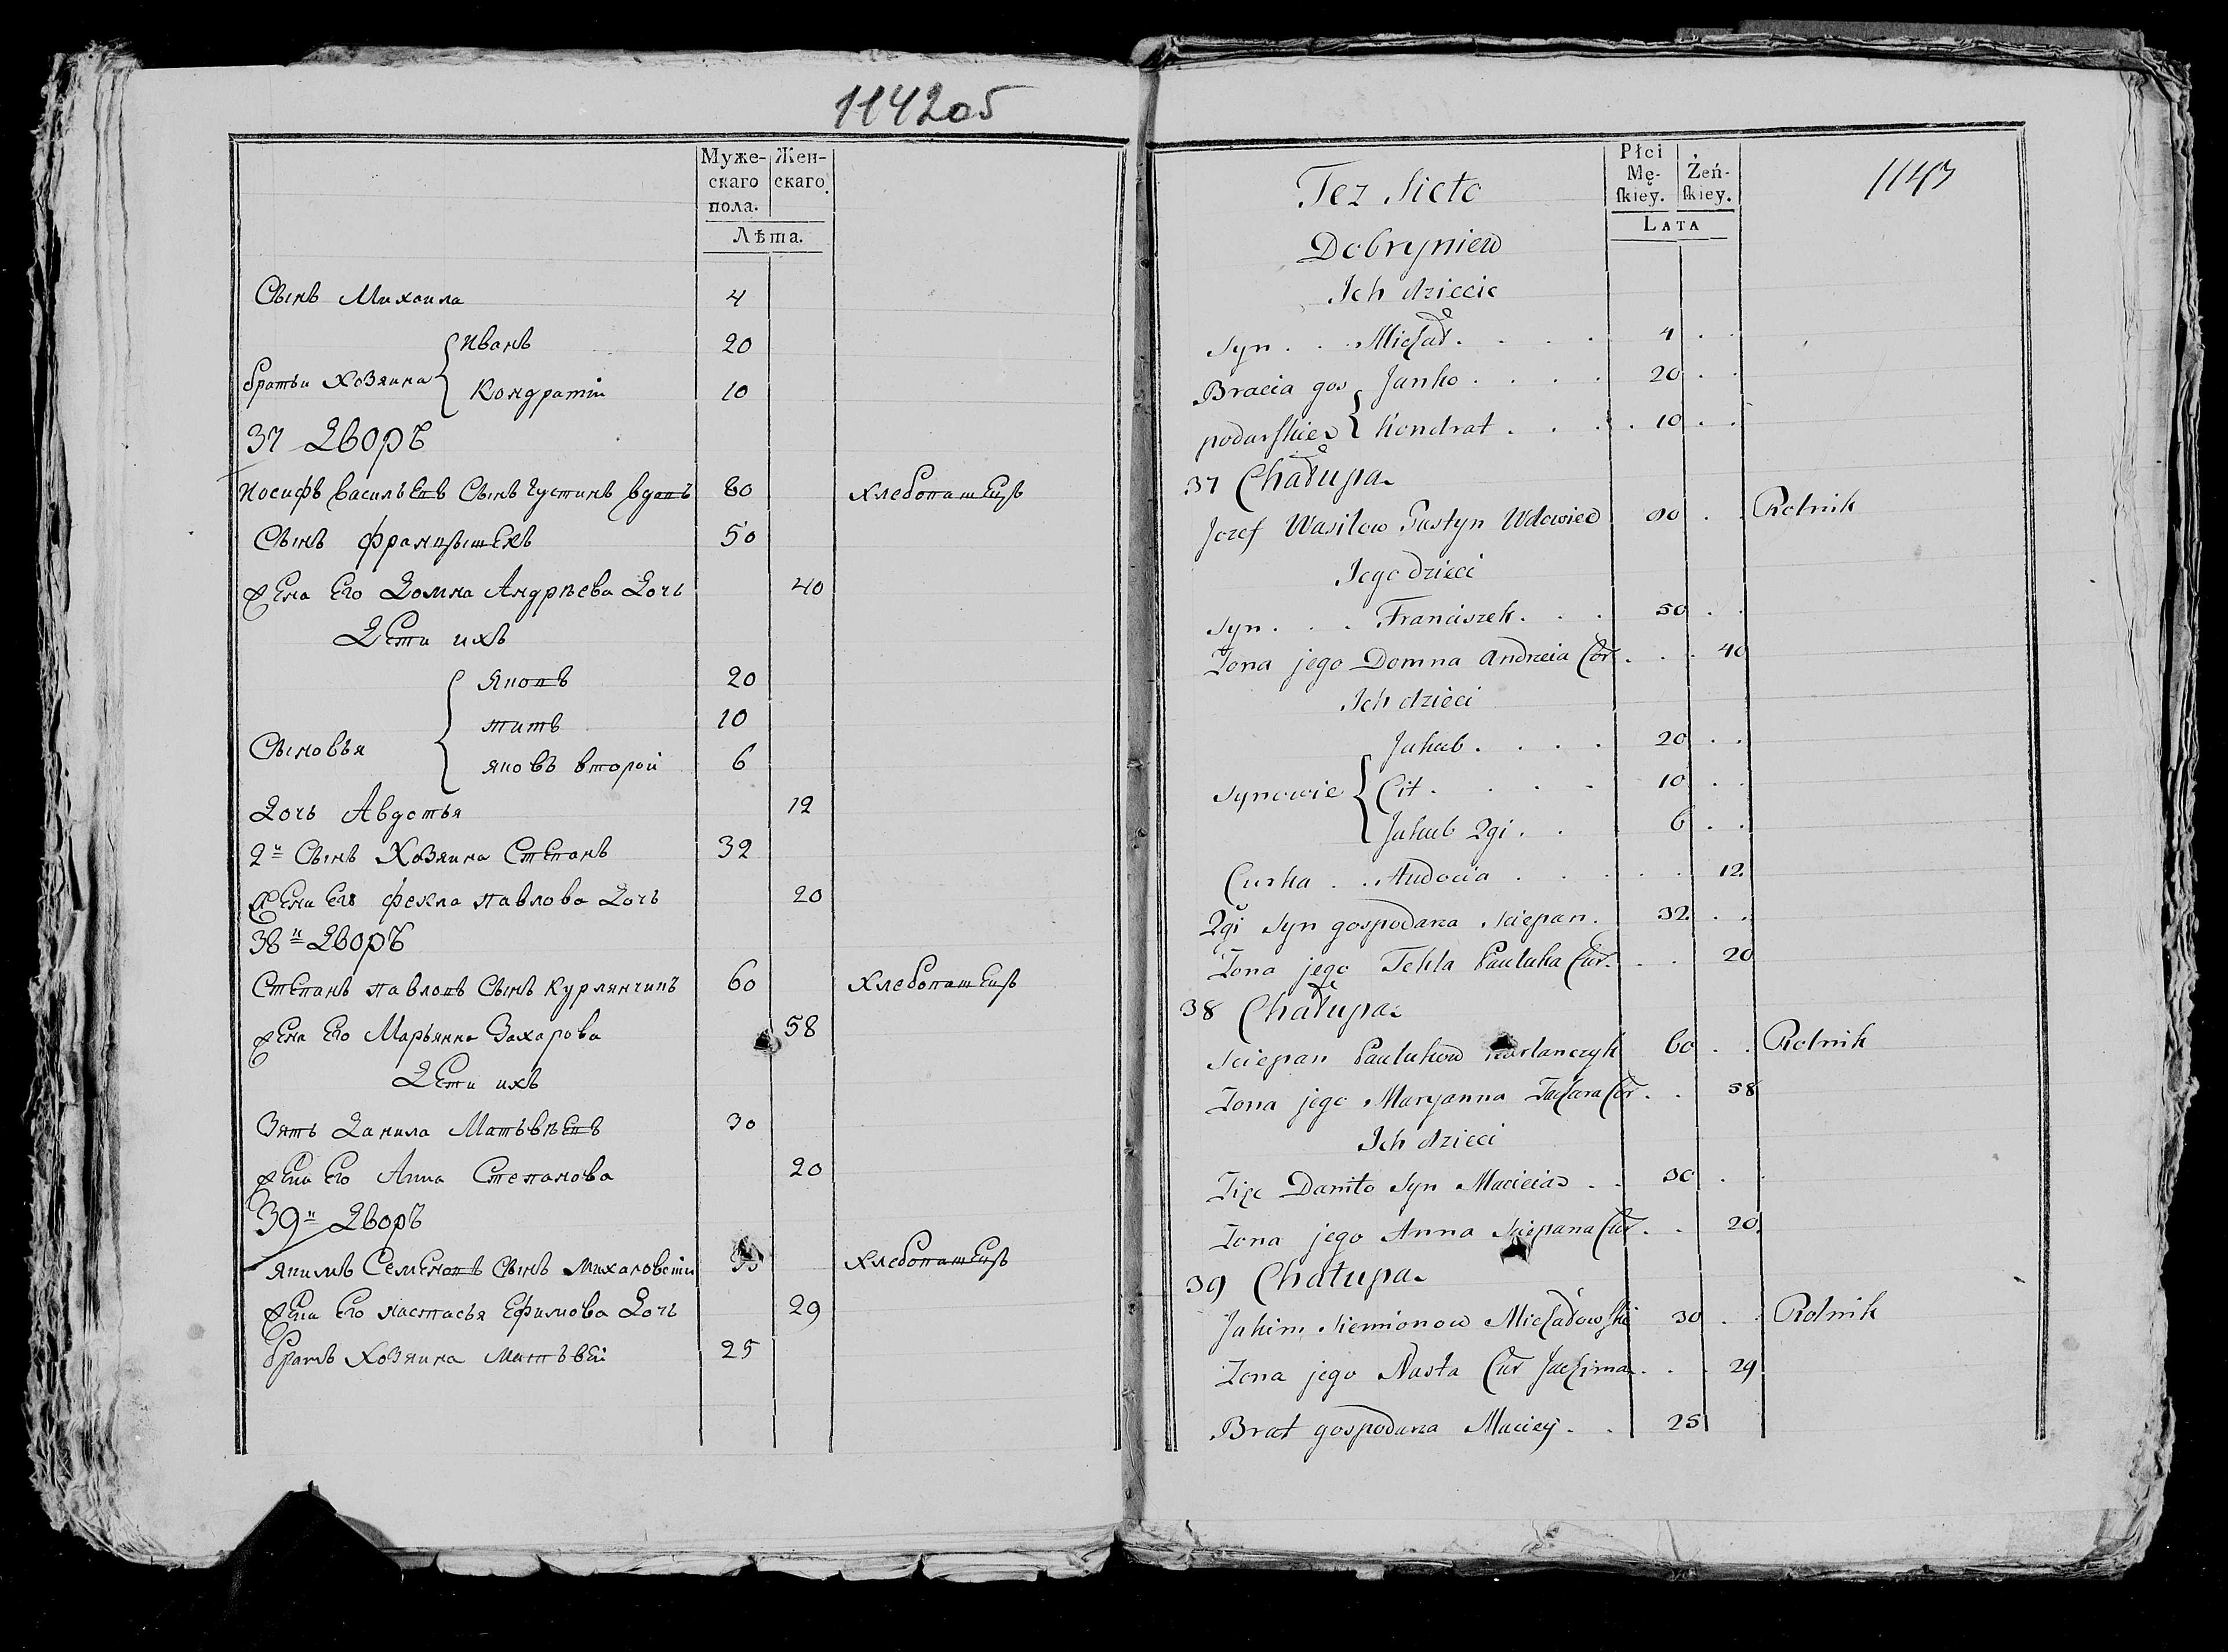 114205
Муже-
скаго
пола.
Жен-
скаго.
Лѣта.
Сынъ Михаила 4
братьи Хозяина Иванъ 20
Кондратiй 10
37 Дворъ
Иосифъ Васильевъ Сынъ Густинъ вдовъ 80 хлебопашецъ
Сынъ францышекъ 50
жена Его Домна Андрѣева Дочь 40
Дети ихъ
Яковъ 20
титъ 10
Сыновья
яковъ второй 6
Дочь Авдотья 12
2й Сынъ Хозяина Степанъ 32
жена Его фекла павлова Дочь 20
38й Дворъ
Степанъ павловъ Сынъ Курлянчикъ 60 хлебопашецъ
жена Его Марьянна Захарова 58
Дети ихъ
Зять Данила Матьвѣевъ 30
жена Его Анна Степанова 20
39й Дворъ
якимъ Семеновъ Сынъ хлебопашецъ
жена Его настасья Ефимова Дочь 29
братъ Хозяина Матьвей 25
1143
Płci
Mę-
ſkiey.
Żeń-
ſkiey.
LATA
Tez Sieło
Dobryniew
Ich dziecie
Syn . . Michał . . . . 4 . .
Bracia gos Janko . . . . 20 . .
podarſkie Kondrat . . . . 10 . .
37 Chałupa
Jozef Wasilow Justyn Wdowiec 80 . . Rolnik
Jego dzieci
Syn . . . Franciszek . . . 50 . .
Zona jego Domna Andrzeia Cor . . . 40
Ich dzieci
Jakub . . . . 20 . .
Synowie Cit . . . . 10 . .
Jakub 2gi . . 6 . .
Curka . . Audocia . . . . . 12.
2gi Syn gospodarza Sciepan . 32 . .
Zona jego Tekla Pauluka Cur. . . 20
38 Chałupa
Sciepan Paulukow Kurlanczyk 60 . . Rolnik
Zona jego Maryanna Zachara Cor . . 58
Ich dzieci
Zięc Daniło Syn Macieia . . 30 . .
Zona jego Anna Sciepana Cur . . 20
39 Chałupa
Jakim Siemionow Michałowſki 30 . . Rolnik
Zona jego Nasta Cur Jachima . . . 29
Brat gospodarza Maciey . . 25